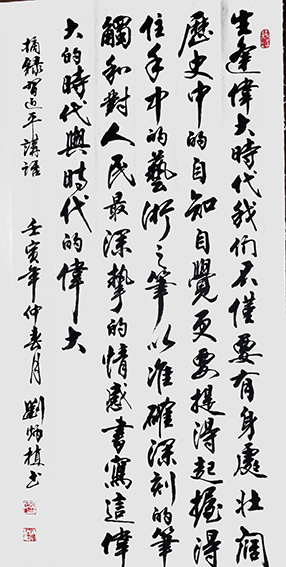 生逢偉大時代我们不僅要有身處壯闊
歷史中的自知自覺更要提得起握得
住手中的藝術之筆以准確深刻的筆
觸和對人民最深摯的情感書寫這偉
大的時代與時代的偉大
摘録習近平講語
壬寅年仲春月劉炳植書